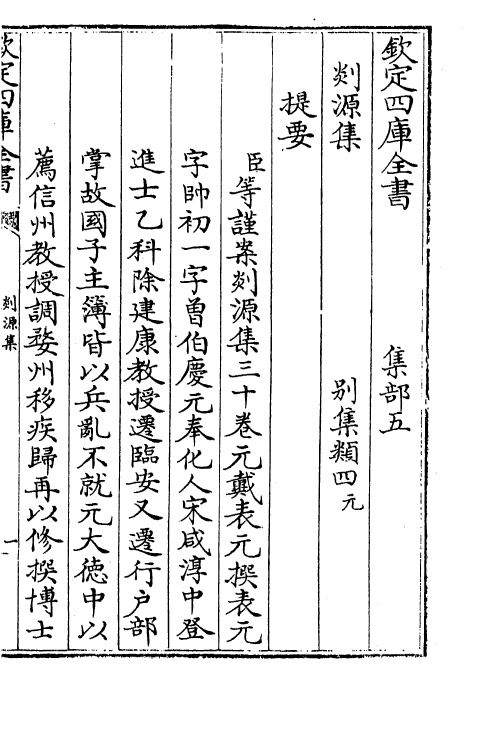 欽定四庫全書　集部五
剡源集　别集類四元
提要
臣等謹案剡源集三十卷元戴表元撰表元
字帥初一字曽伯慶元奉化人宋咸淳中登
進士乙科除建康教授遷臨安又遷行户部
掌故國子主簿皆以兵亂不就元大徳中以
薦信州教授調婺州移疾歸再以修撰博士
欽定四庫全書　剡源集　一